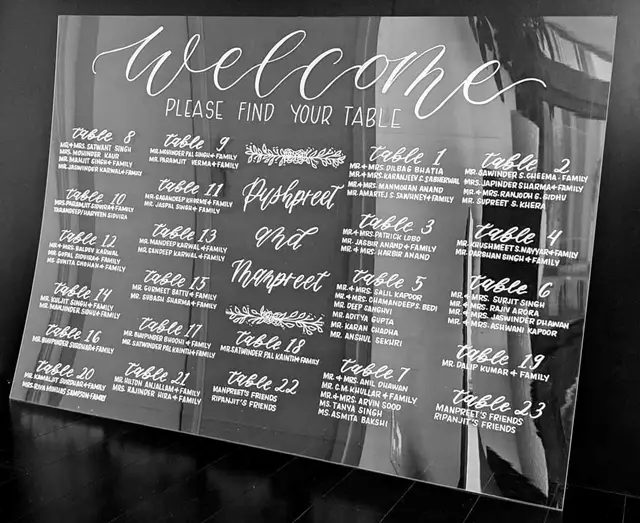 welcome
PLEASE FIND YOUR TABLE
table 8
MR.+MRS. SATWANT SINGH
MRS. MOHINDER KAUR
MR. MANJIT SINGH+FAMILY
MR. JASWINDER KARWAL+FAMILY
table 9
MR. MOHINDER PAL SINGH+FAMILY
MR. PARAMJIT VERMA+FAMILY
table 10
MRS. PARAMJIT GUWRA+FAMILY
TARANDEEP/HARVEEN SIDVHA
table 11
MR. GAGANDEEP KHURMI+FAMILY
MR. JASPAL SINGH+FAMILY
table 12
MR.+MRS. BALDEV KARWAL
MR. GOPAL SIDDHAR+FAMILY
MR. SUNITA CHOHAN+FAMILY
table 13
MR. MANDEEP KARWAL+FAMILY
MR. SANDEEP KARWAL+FAMILY
table 14
MR. KULJIT SINGH+FAMILY
MR. MANJINDER SINGH+FAMILY
table 15
MR. GURMEET BATTU+FAMILY
MR. SUBASH SHARMA+FAMILY
table 16
MR. BHUPINDER SIDDHAR+FAMILY
table 17
MR. BHUPINDER DHOOR+FAMILY
MR. SATWINDER PAL KAINTH+FAMILY
table 20
MR. KAMALJIT SIDDHAR+FAMILY
MRS. SAMSON+FAMILY
table 21
MR. HILTON ANJALLAM+FAMILY
MRS. RAJINDER HIRA+FAMILY
Pushpreet
and
Manpreet
table 18
MR. SATWINDER PAL KAINTH+FAMILY
table 22
MANPREET'S FRIENDS
RIPANJIT'S FRIENDS
table 1
MR.+MRS. DILBAG BHATIA
MR.+MRS. KARANJEEV S. SABHERWAL
MR.+MRS. MANMOHAN ANAND
MR. AMARTEJ S. SAWHNEY+FAMILY
table 2
MR. SAWINDER S. CHEEMA+FAMILY
MRS. JAPINDER SHARMA+FAMILY
MR.+MRS. RANJODH S. SIDHU
MR. SUPREET S. KHERA
table 3
MR.+MRS. PATRICK LOBO
MR. JASBIR ANAND+FAMILY
MR.+MRS. HARBIR ANAND
table 4
MR. KHUSHMEET S. NAYYAR+FAMILY
MR. DARSHAN SINGH+FAMILY
table 5
MR.+MRS. SALIL KAPOOR
MR.+MRS. CHAMANDEEP S. BEDI
MR. DEEP SANGHVI
MR. ADITYA GUPTA
MR. KARAN CHADHA
MR. ANSHUL SEKHRI
table 6
MR.+MRS. SURJIT SINGH
MR.+MRS. RAJIV ARORA
MR.+MRS. JASWINDER DHAWAN
MR.+MRS. ASHWANI KAPOOR
table 7
MR.+MRS. ANIL DHAWAN
MR. C.M. KHULLAR+FAMILY
MR.+MRS. ARVIN SOOD
MS. TANYA SINGH
MS. ASMITA BAKSHI
table 19
MR. DALIP KUMAR+FAMILY
table 23
MANPREET'S FRIENDS
RIPANJIT'S FRIENDS